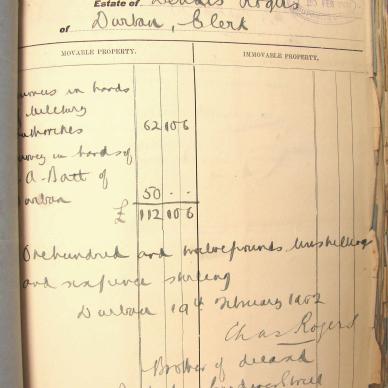 Estate of Dennis Rogers
of Durban, Clerk
MOVABLE PROPERTY.
IMMOVABLE PROPERTY.
in hands
Military
Authorities 62 10 6
in hands of
A. Batt of
Durban 50 . .
£ 112 10 6
One hundred and twelve pounds ten shillings
and six pence sterling
Durban 19th February 1902
Chas Rogers
Brother of deceased